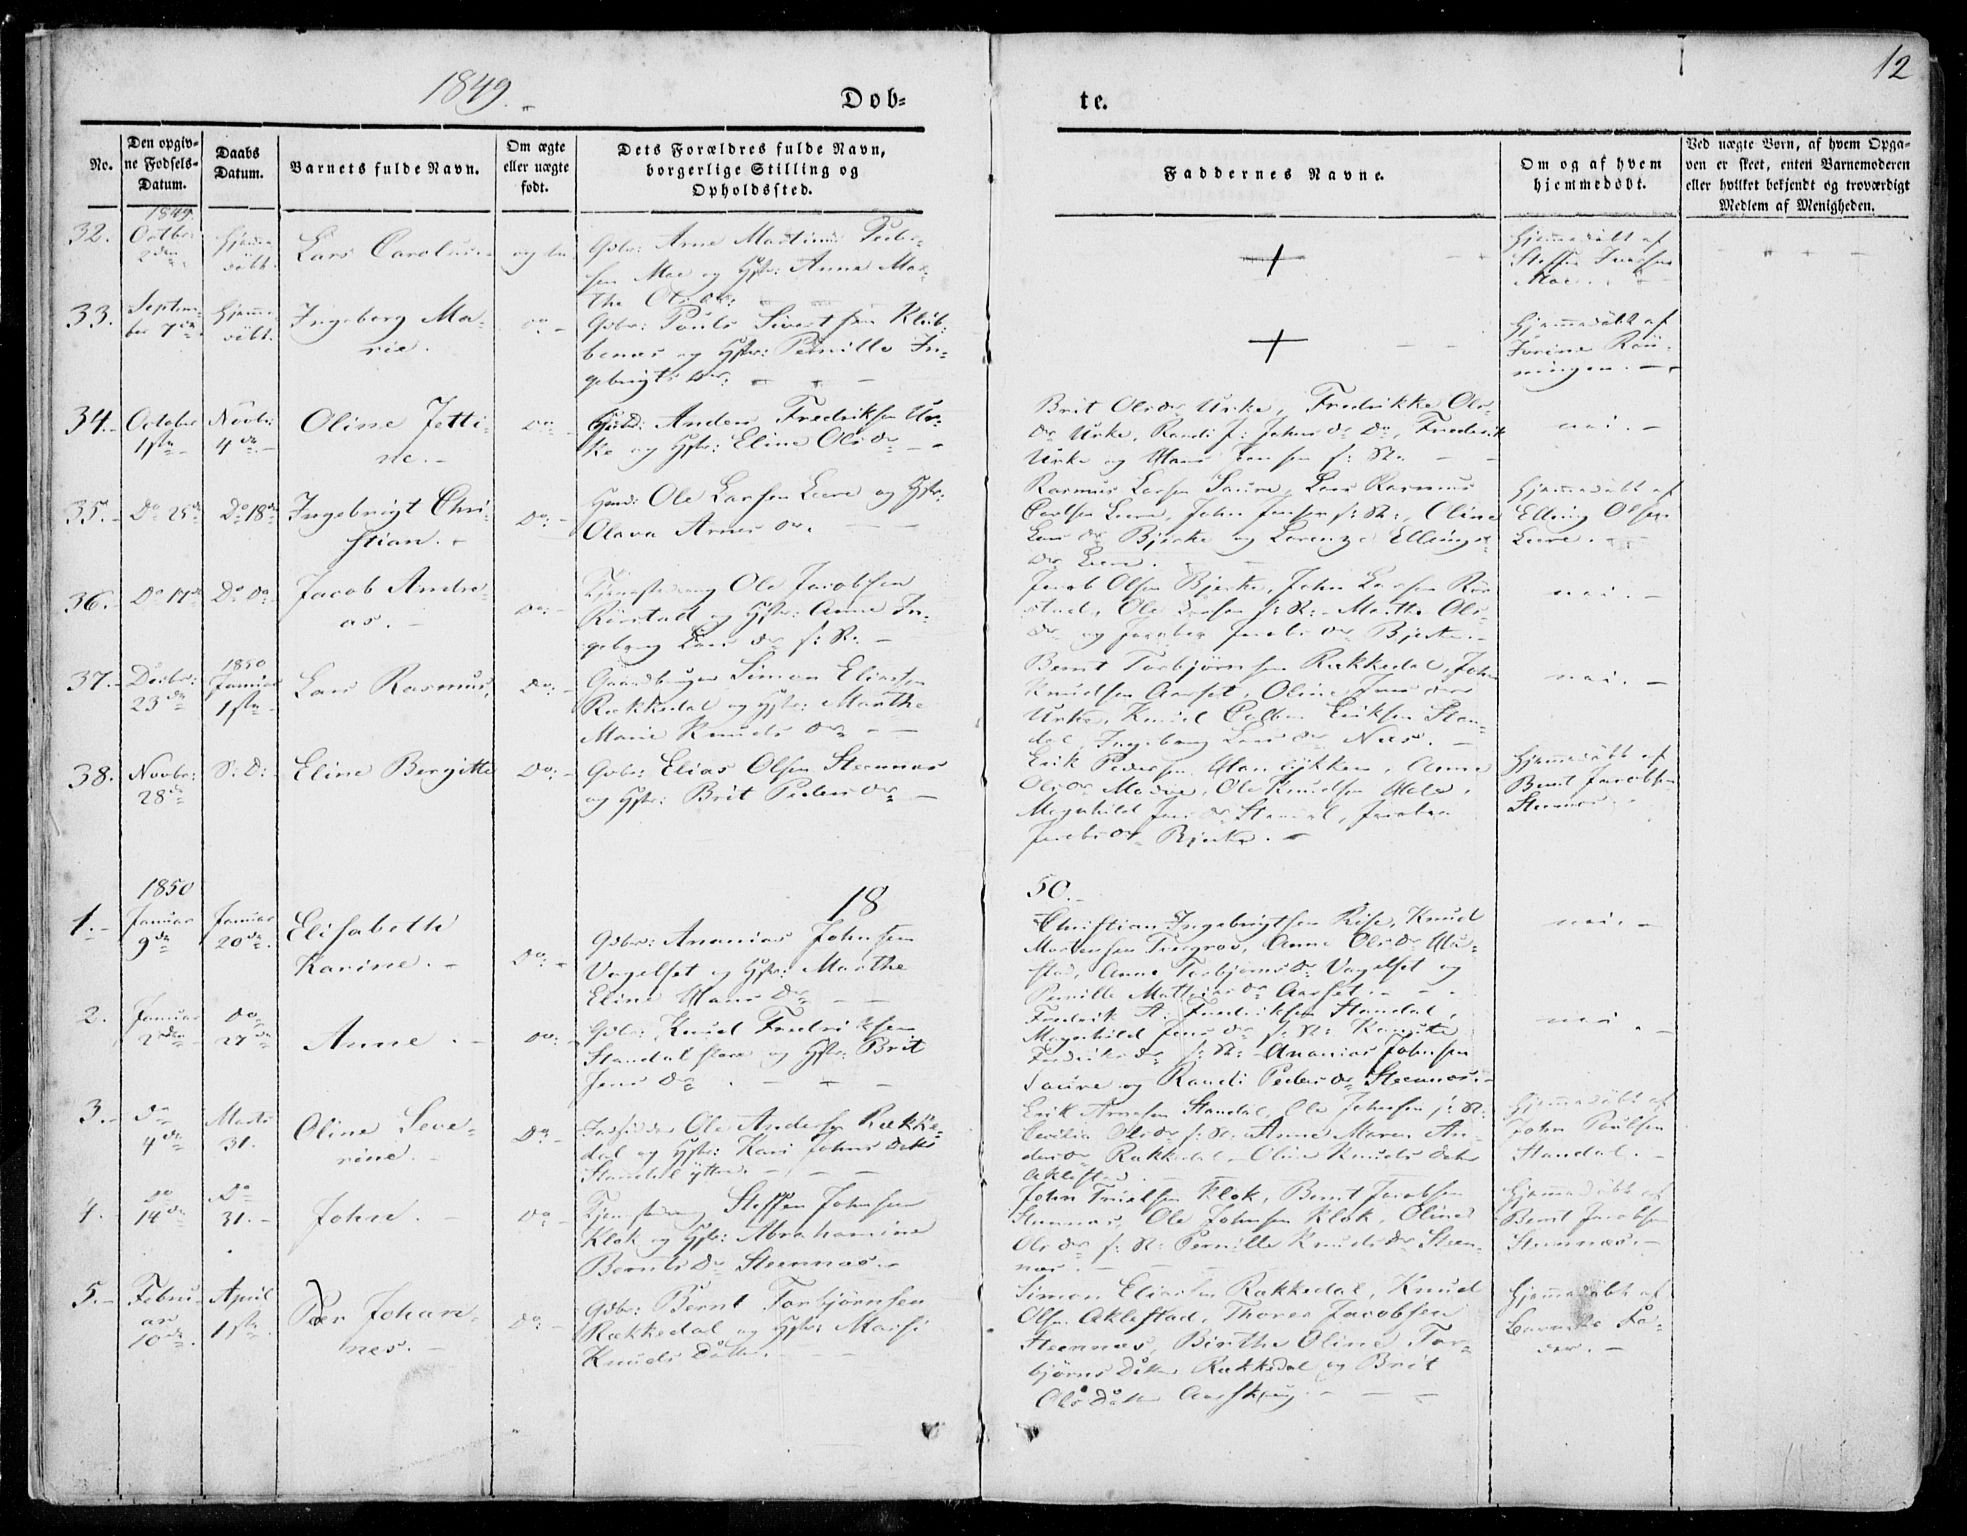 12
1849.
Döb-
te.
No.
Den opgiv-
ne Fødsels-
Datum.
Daabs
Datum.
Barnets fulde Navn.
Om ægte
eller uægte
født.
Dets Forældres fulde Navn,
borgerlige Stilling og
Opholdssted.
Faddernes Navne.
Om og af hvem
hjemmedøbt.
Ved uægte Børn, af hvem Opga-
ven er skeet, enten Barnemoderen
eller hvilket bekjendt og troværdigt
Medlem af Menigheden.
1849.
32.
Octbr
2den
Hjemme
döbt.
Lars Carolus
ægte.
Gdbr: Arne Martinus Peder-
sen Moe og Hstr: Anne Mar-
the Olsdr:
+
Hjemmedöbt af
Steffen Iversen
Moe.
33.
Septem-
ber 7de
Hjemme
döbt.
Ingeborg Ma-
rie.
do
Gdbr: Pouls Sivertsen Klub-
benes og Hstr: Pernille In-
gebrigtsdr:
+
Hjemmedöbt af
Iverine Röu-
ningen.
34.
October
1ste
Novbr:
4de
Oline Jetti-
ne.
Do
Anders Fredriksen Ur-
ke og Hstr: Eline Olsdr
Brit Olsdr Urke, Fredrikke Ols-
dr Urke, Randi Johnsdr Do, Fredrik
Urke og Hans Jensen f: St.
nei.
35.
Do 25de
Do 18de
Ingebrigt Chri-
stian.
Do:
Ole Larsen Leere og Hstr:
Olava Arnesdr.
Rasmus Larsen Saure, Lars Rasmus
Carlsen Leere, John Jensen f: St:, Oline
Larsdr Bjerke og Lorenze Ellings-
dr Leere.
Hjemmedöbt af
Elling Olsen
Leere.
36.
Do 17de
Do Do
Jacob Andre-
as.
Do:
Tjenestedreng Ole Jacobsen
Rörstad og Hstr: Anne In-
geborg Larsdr f: St.
Jacob Olsen Bjerke, John Larsen Rör-
stad, Ole Larsen f: St: Marthe Ols-
dr og Jacobea Jacobsdr Bjerke.
nei.
37.
Decbr:
23de
1850
Januar
1ste
Lars Rasmus.
Do:
Gaardbruger Simon Eliassen
Rækkedal og Hstr: Marthe
Marie Knudsdr
Bernt Torbjörnsen Rækkedal, John
Knudsen Aarset, Oline Iversdr
Urke, Knud Colben Eriksen Stan-
dal, Ingeborg Larsdr Næs.
nei.
38.
Novbr:
28de
S: D:
Eline Bergitte
Do:
Gdbr: Elias Olsen Steennæs
og Hstr: Brit Pedersdr
Erik Pedersen, Anne
Olsdr, Ole Knudsen,
Magnhild Jensdr Standal, Jacobea
Jacobsdr Bjerke.
Hjemmedöbt af
Bernt Jacobsen
Steennæs.
1850
18
50.
1.
Januar
9de
Januar
20de
Elisabeth
Karine.
Do:
Gdbr: Ananias Johnsen
Vagelset og Hstr: Marthe
Eline Hansdr
Christian Ingebrigtsen Rise, Knud
Mortensen, Anne Olsdr Hu-
stad, Anne Torbjörnsdr Vagelset og
Pernille Mathiasdr Aarset.
nei.
2.
Januar
2den
do
27de
Anne.
do:
Gdbr: Knud Fredriksen
Standal store og Hstr: Brit
Jensdr.
Fredrik A. Fredriksen Standal,
Magnhild Jensdr f: St:
Fredriksdr f: St: Ananias Johnsen
Saure og Randi Pedersdr Steennæs.
nei.
3.
do
4de
Marts
31.
Oline Seve-
rine.
Do
Ole Andersen Række-
dal og Hstr: Kari Johnsdatter
Standal ytter.
Erik Arnesen Standal, Ole Johnsen f: St:
Cecilia Olsdr f: St: Anne Maren An-
dersdr Rækkedal, Oline Knudsdatter
Aklestad.
Hjemmedöbt af
John Paulsen
Standal.
4.
do
14de
Do
31.
John.
Do
Tjenestedreng Steffen Johnsen
Klok og Hstr: Abrahamine
Berntsdr Steennæs.
John Truelsen Klok, Bernt Jacobsen
Steennæs, Ole Johnsen Klok, Oline
Olsdr f: St: Pernille Knudsdr Steen-
næs.
Hjemmedöbt af
Bernt Jacobsen
Steennæs.
5.
Febru-
ar
10de
April
1ste
Peer Johan-
nes.
Do:
Gdbr: Bernt Torbjörnsen
Rækkedal og Hstr: Marsi
Knudsdatter.
Simon Eliassen Rækkedal, Knud
Olsen Aklestad, Thores Jacobsen
Steennæs, Birthe Oline Tor-
björnsdatter Rækkedal og Brit
Olsdatter Aarskoug.
Hjemmedöbt af
Barnets Fa-
der.